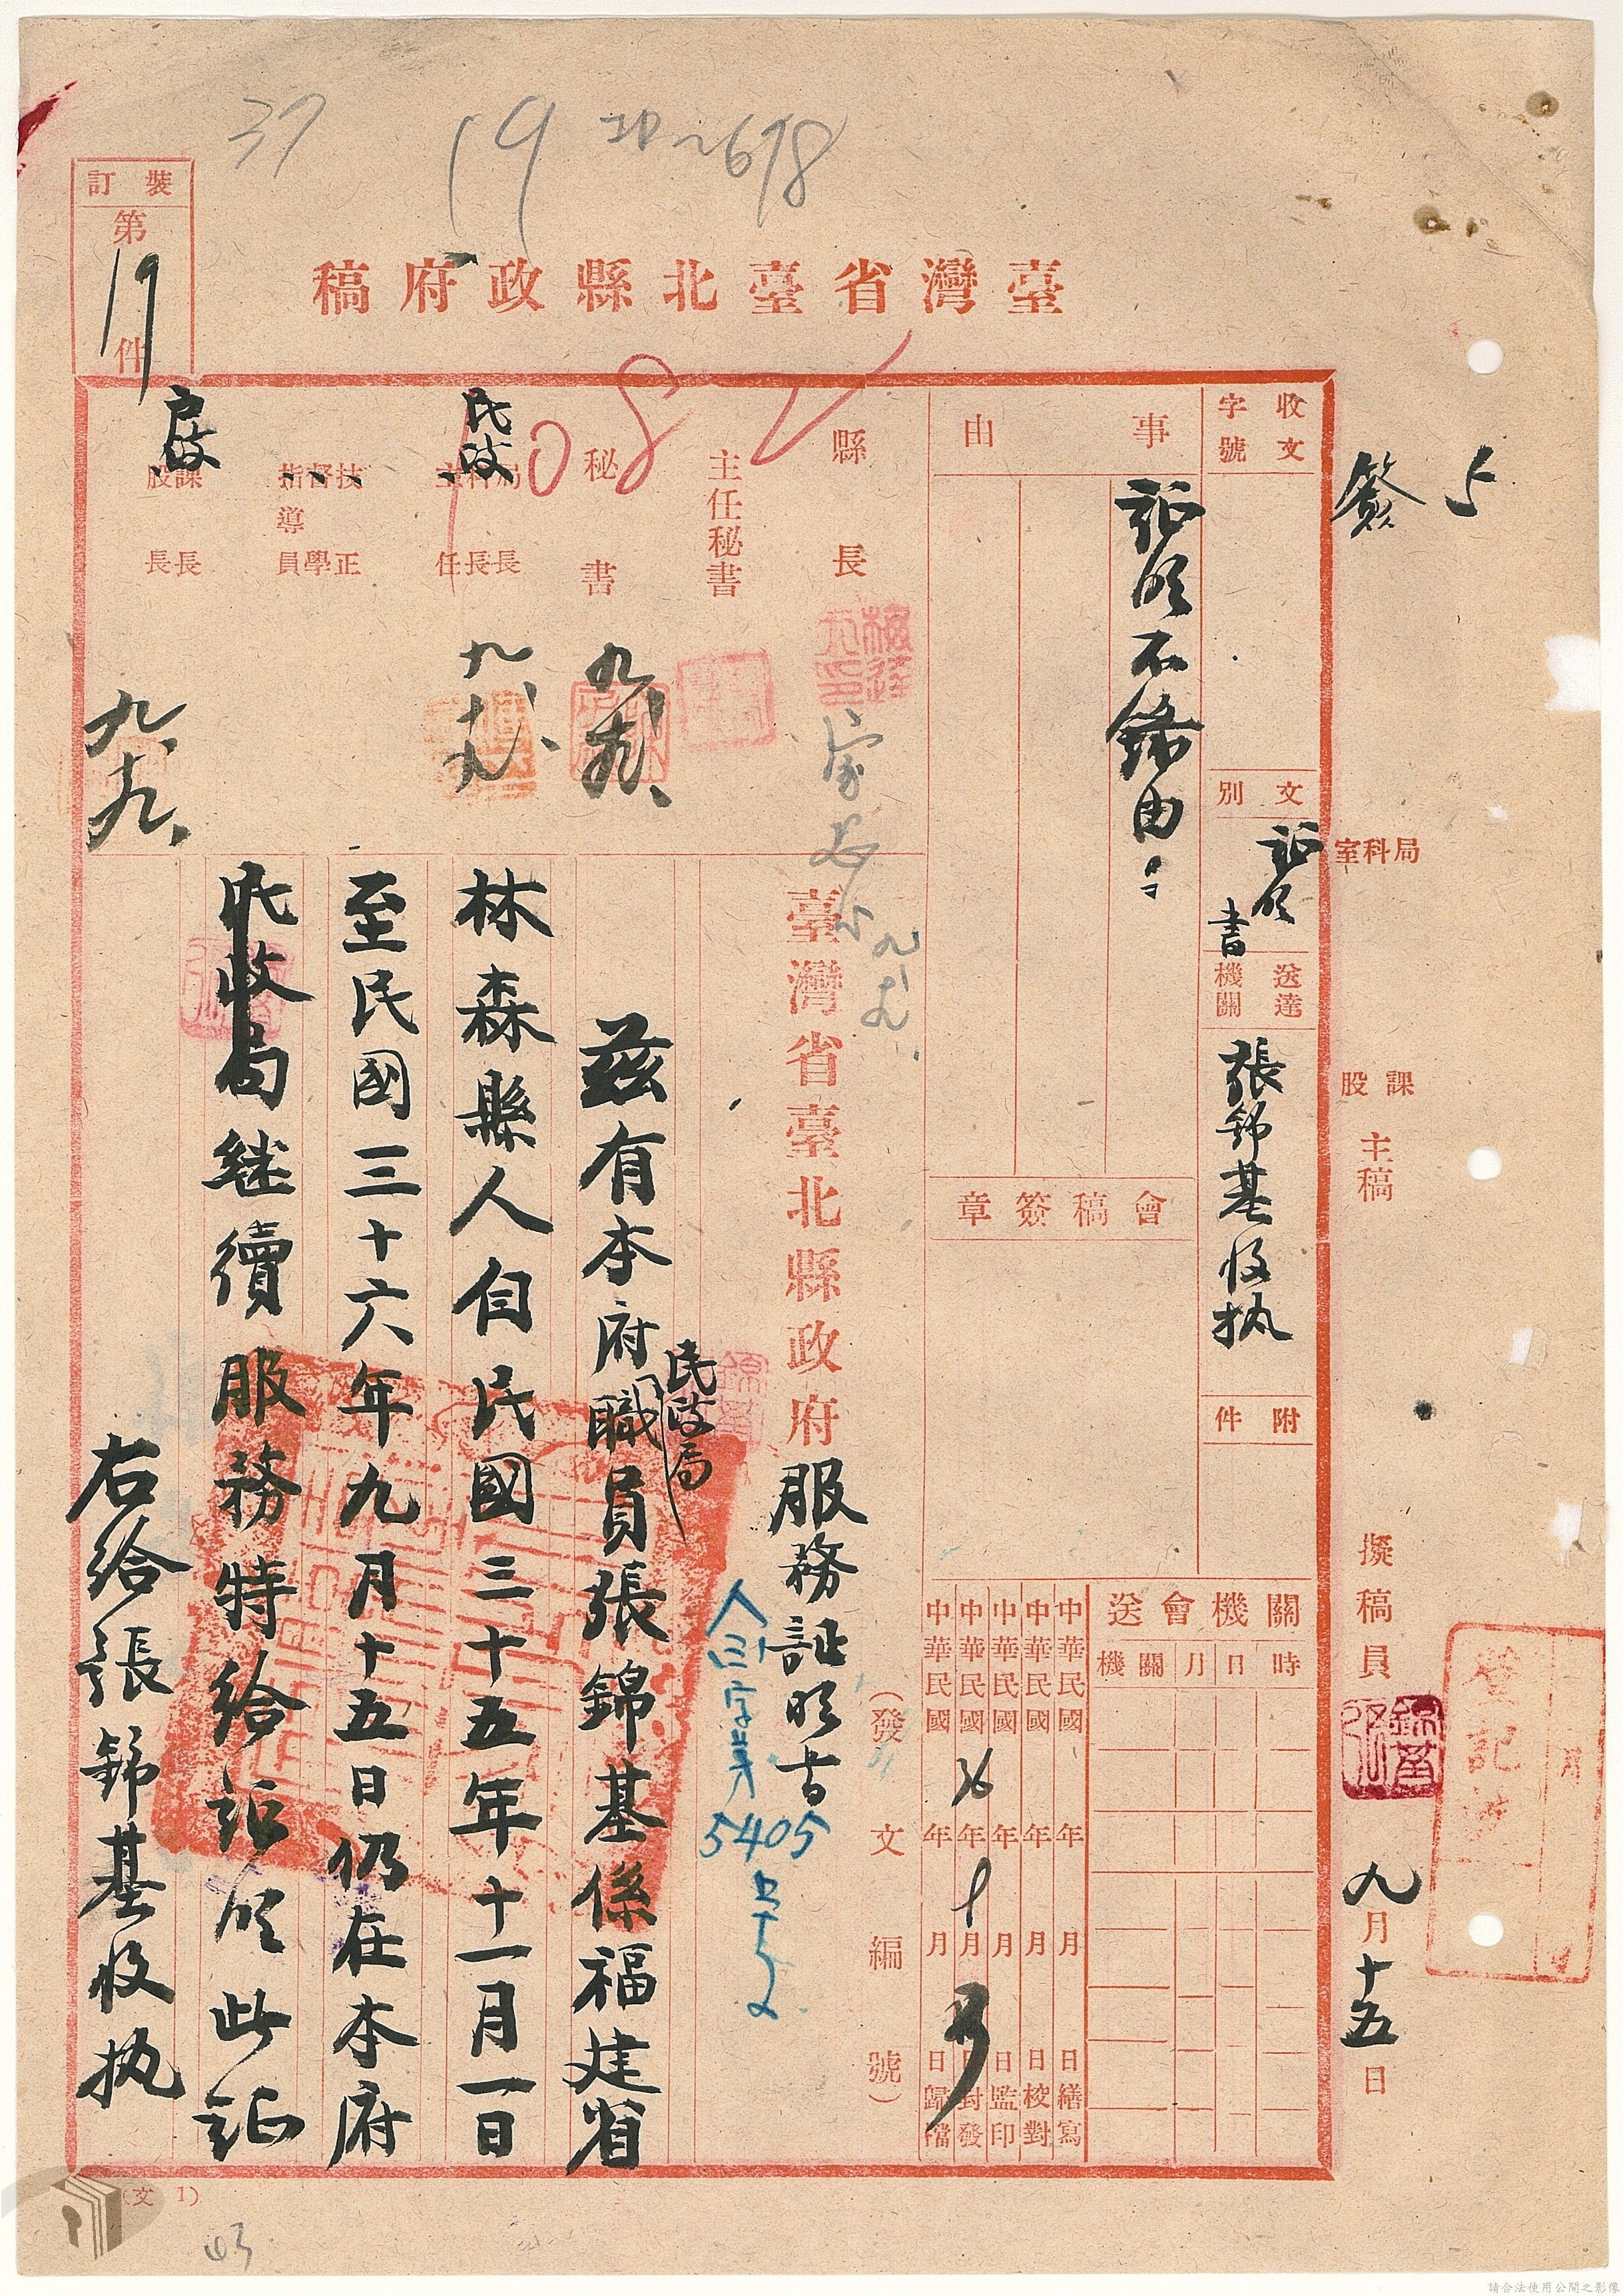 37
19
678
裝訂
第19件
臺灣省臺北縣政府稿
簽
局科室
課股
主稿
擬稿員
九月十五日
收文
字號
文別
証明書
送達機關
張錦基收执
附件
事由
証明不錄由
會稿簽章
關機會送
時 日 月 關機
中華民國 年 月 日繕寫
中華民國 年 月 日校對
中華民國 年 月 日監印
中華民國36年9月 日封發
中華民國 年 月 日歸檔
縣長
主任秘書
秘書
九、
民政
局科主
長長任
九、
技督指導
正學員
户政
課股
長長
九、十九、
(發文編號)
臺灣省臺北縣政府服務証明书
字第5405号
兹有本府民政局職員張錦基係福建省
林森縣人自民國三十五年十一月一日
至民國三十六年九月十五日仍在本府
民政局继續服務特给証明此証
右给張錦基收执
(文 1)
請合法使用公開之影像